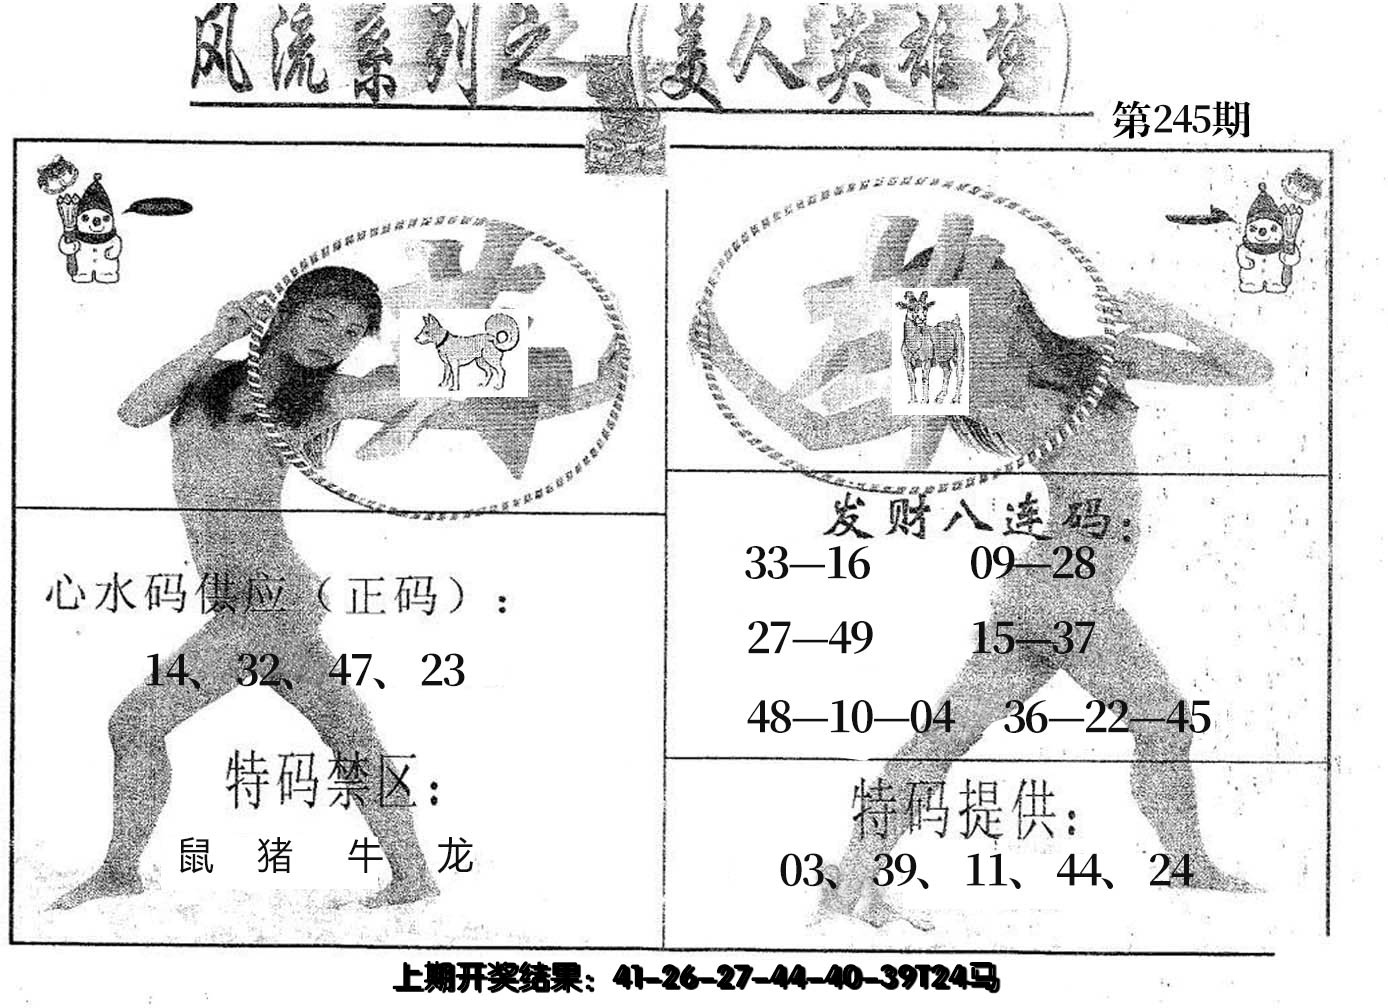 风流系列之(美人英雄梦
第245期
心水码供应(正码):
14、32、47、23
特码禁区:
鼠 猪 牛 龙
发财八连码:
33—16 09—28
27—49 15—37
48—10—04 36—22—45
特码提供:
03、39、11、44、24
上期开奖结果:41-26-27-44-40-39T24马